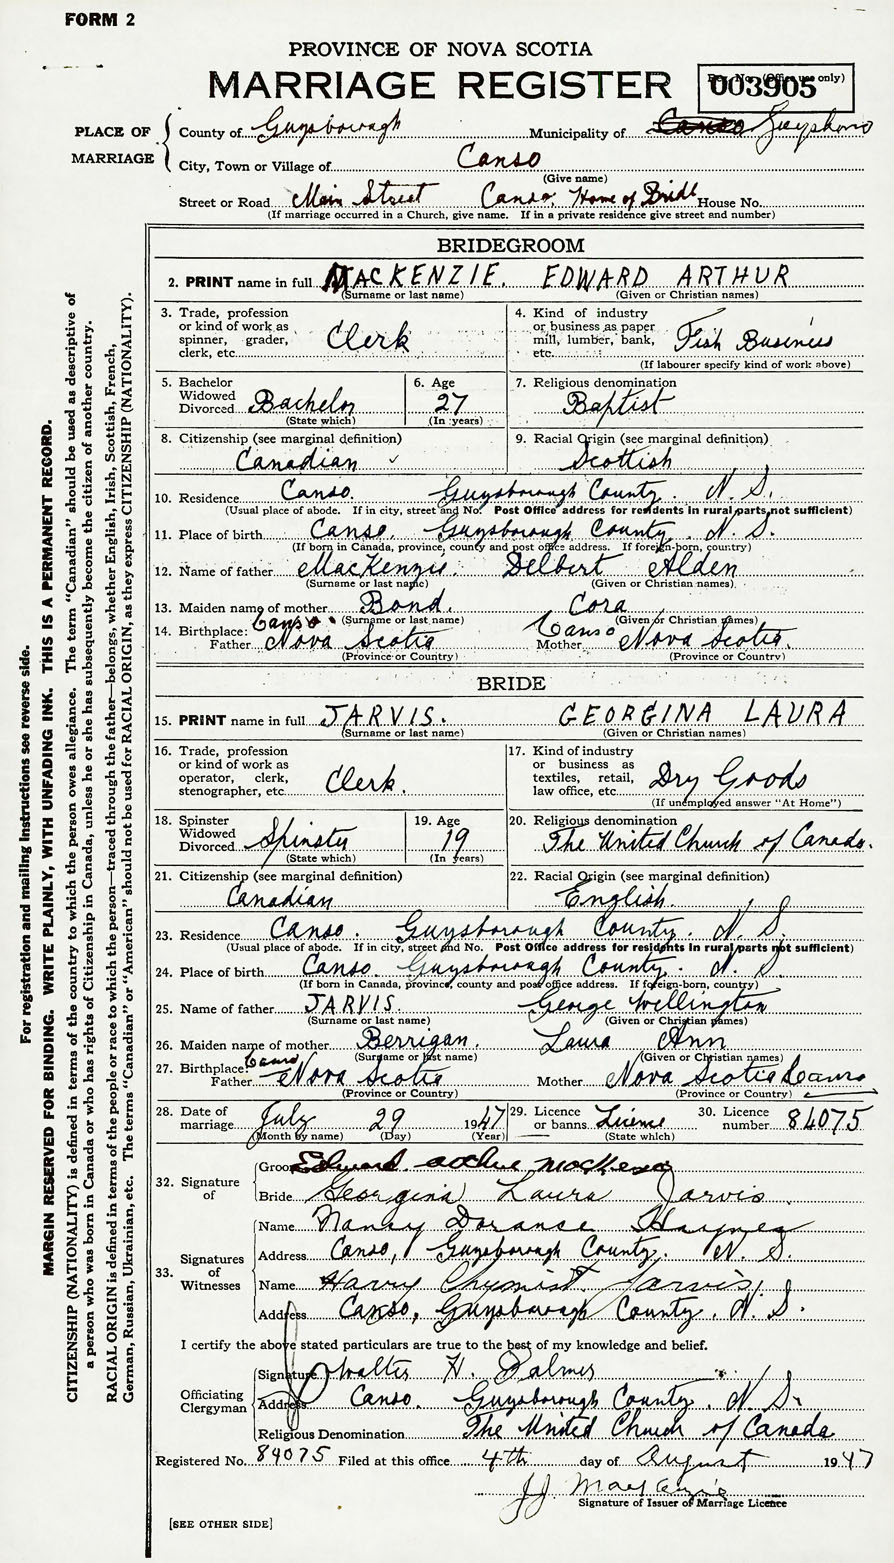 FORM 2
PROVINCE OF NOVA SCOTIA
MARRIAGE REGISTER
Reg. No. (Office use only)
003905
PLACE OF MARRIAGE
County of Guysborough Municipality of Canso Guysboro
City, Town or Village of Canso
(Give name)
Street or Road Main Street Canso, Home of Bride House No.
(If marriage occurred in a Church, give name. If in a private residence give street and number)
BRIDEGROOM
2. PRINT name in full MACKENZIE. EDWARD ARTHUR
(Surname or last name) (Given or Christian names)
3. Trade, profession or kind of work as spinner, grader, clerk, etc. Clerk
4. Kind of industry or business as paper mill, lumber, bank, etc. Fish Business
(If labourer specify kind of work above)
5. Bachelor Widowed Divorced Bachelor
(State which)
6. Age 27
(In years)
7. Religious denomination
Baptist
8. Citizenship (see marginal definition)
Canadian
9. Racial Origin (see marginal definition)
Scottish
10. Residence Canso. Guysborough County. N. S.
(Usual place of abode. If in city, street and No. Post Office address for residents in rural parts not sufficient)
11. Place of birth Canso. Guysborough County. N. S.
(If born in Canada, province, county and post office address. If foreign-born, country)
12. Name of father MacKenzie. Delbert Alden
(Surname or last name) (Given or Christian names)
13. Maiden name of mother Bond. Cora
(Surname or last name) (Given or Christian names)
14. Birthplace: Father Canso. Nova Scotia Mother Canso Nova Scotia.
(Province or Country) (Province or Country)
BRIDE
15. PRINT name in full JARVIS. GEORGINA LAURA
(Surname or last name) (Given or Christian names)
16. Trade, profession or kind of work as operator, clerk, stenographer, etc. Clerk.
17. Kind of industry or business as textiles, retail, law office, etc. Dry Goods
(If unemployed answer "At Home")
18. Spinster Widowed Divorced Spinster
(State which)
19. Age 19
(In years)
20. Religious denomination
The United Church of Canada.
21. Citizenship (see marginal definition)
Canadian
22. Racial Origin (see marginal definition)
English.
23. Residence Canso. Guysborough County. N. S.
(Usual place of abode. If in city, street and No. Post Office address for residents in rural parts not sufficient)
24. Place of birth Canso. Guysborough County. N. S.
(If born in Canada, province, county and post office address. If foreign-born, country)
25. Name of father JARVIS. George Wellington
(Surname or last name) (Given or Christian names)
26. Maiden name of mother Berrigan. Laura Ann
(Surname or last name) (Given or Christian names)
27. Birthplace: Father Canso Nova Scotia Mother Nova Scotia Canso
(Province or Country) (Province or Country)
28. Date of marriage July 29 1947
(Month by name) (Day) (Year)
29. Licence or banns Licence
(State which)
30. Licence number 84075
32. Signature of
Groom Edward Arthur MacKenzie
Bride Georgina Laura Jarvis
33. Signatures of Witnesses
Name Nancy Dorance Haynes
Address Canso, Guysborough County. N. S.
Name Harry Jarvis
Address Canso, Guysborough County. N. S.
I certify the above stated particulars are true to the best of my knowledge and belief.
Officiating Clergyman
Signature Walter H. Palmer
Address Canso. Guysborough County. N. S.
Religious Denomination The United Church of Canada
Registered No. 84075 Filed at this office 4th day of August 1947
J.J. MacKenzie
Signature of Issuer of Marriage Licence
[SEE OTHER SIDE]
For registration and mailing instructions see reverse side.
MARGIN RESERVED FOR BINDING. WRITE PLAINLY, WITH UNFADING INK. THIS IS A PERMANENT RECORD.
CITIZENSHIP (NATIONALITY) is defined in terms of the country to which the person owes allegiance. The term "Canadian" should be used as descriptive of
a person who was born in Canada or who has rights of Citizenship in Canada, unless he or she has subsequently become the citizen of another country.
RACIAL ORIGIN is defined in terms of the people or race to which the person—traced through the father—belongs, whether English, Irish, Scottish, French,
German, Russian, Ukrainian, etc. The terms "Canadian" or "American" should not be used for RACIAL ORIGIN, as they express CITIZENSHIP (NATIONALITY).